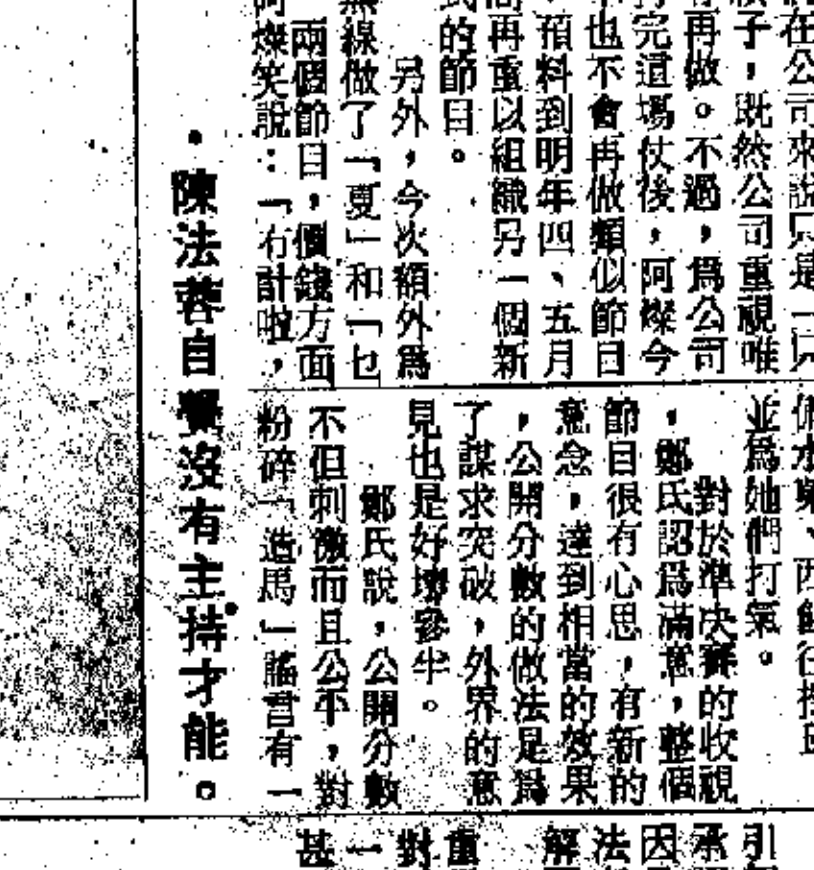 們在公司來說只是一只
棋子，既然公司重視唯
有再做。不過，爲公司
打完這場仗後，阿燦今
年也不會再做類似節目
，預料到明年四、五月
間再重以組織另一個新
式的節目。
另外，今次額外爲
無線做了「夏」和「乜
」兩個節目，價錢方面
阿燦笑說：「冇計啦，
並爲她們打氣。
對於準決賽的收視
，鄭氏認爲滿意，整個
節目很有心思，有新的
意念，達到相當的效果
，公開分數的做法是爲
了謀求突破，外界的意
見也是好壞參半。
鄭氏說，公開分數
不但刺激而且公平，對
粉碎「造馬」謠言有一
·陳法蓉自覺沒有主持才能。
引
承
因
法
解
重
對
一
甚